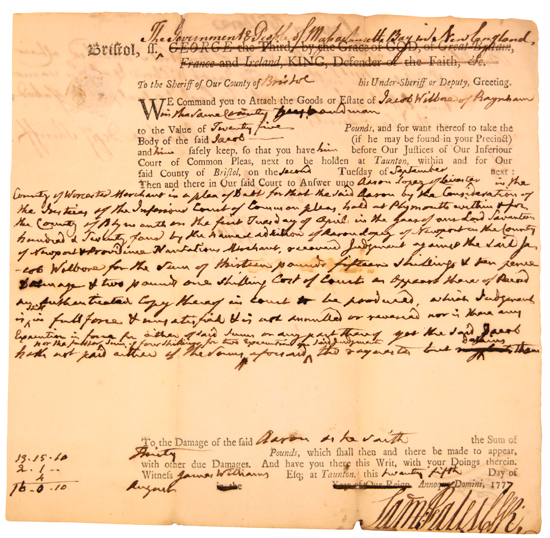 The Government & People of Massachusetts Bay in New England,
Bristol, ss. GEORGE the Third, by the Grace of GOD, of Great-Britain,
France and Ireland, KING, Defender of the Faith, &c.
To the Sheriff of Our County of Bristol his Under-Sheriff or Deputy, Greeting.
WE Command you to Attach the Goods or Estate of Jacob Wilbore of Raynham
in the same County
to the Value of Twenty five Pounds, and for want thereof to take the
Body of the said Jacob (if he may be found in your Precinct)
and him safely keep, so that you have him before Our Justices of Our Inferiour
Court of Common Pleas, next to be holden at Taunton, within and for Our
said County of Bristol, on the second Tuesday of September next :
Then and there in Our said Court to Answer unto Aaron Lopez of Leicester in the
County of Worcester Merchant in a plea of Debt for that the said Aaron by the Consideration of
the Justices of the Inferiour Court of Common pleas, held at Plymouth within & for
the County of Plymouth on the first Tuesday of April in the year of our Lord Seventeen
hundred & Seventy four, by the name & addition of Aaron Lopez of Newport in the County
of Newport & Providence Plantations Merchant, recovered Judgment against the said Ja-
cob Wilbore for the Sum of thirteen pounds fifteen Shillings & ten pence
Damage & two pounds one Shilling Cost of Court as appears there of Record
an Authenticated Copy thereof in Court to be produced, which Judgment
is in full force & unsatisfied & is not annulled or reversed nor is there any
Execution in force for either of said Sums or any part thereof yet the said Jacob
nor the further Sum of four shillings for two Executions on said Judgment
hath not paid either of the Sums aforesaid, tho requested but detains them
To the Damage of the said Aaron as he saith the Sum of
Thirty Pounds, which shall then and there be made to appear,
with other due Damages. And have you there this Writ, with your Doings therein.
Witness James Williams Esq; at Taunton, this twenty fifth Day of
August in the Year of Our Reign Annoque Domini, 1777
13 - 15 - 10
2 - 1 - -
4
16 - 0 - 10